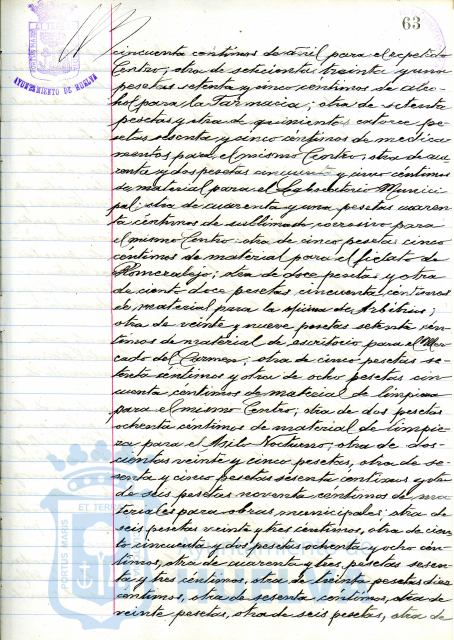 63
AYUNTAMIENTO DE HUELVA
cincuenta céntimos de añil para el repetido
Centro; otra de setecientas treinta y una
pesetas setenta y cinco céntimos de alco-
hol para la Farmacia; otra de setenta
pesetas y otra de quinientas catorce pe-
setas sesenta y cinco céntimos de medica-
mentos para el mismo Centro; otra de cua-
renta y dos pesetas cincuenta y cinco céntimos
de material para el Laboratorio Munici-
pal; otra de cuarenta y una pesetas cuaren-
ta céntimos de sublimado corrosivo para
el mismo Centro; otra de cinco pesetas cinco
céntimos de material para el fielato de
Romeralejo; otra de doce pesetas y otra
de ciento doce pesetas cincuenta céntimos
de material para la oficina de Arbitrios;
otra de veinte y nueve pesetas setenta cén-
timos de material de escritorio para el Mer-
cado del Carmen; otra de cinco pesetas se-
tenta céntimos y otra de ocho pesetas cin-
cuenta céntimos de material de limpieza
para el mismo Centro; otra de dos pesetas
ochenta céntimos de material de limpie-
za para el Asilo Nocturno; otra de dos-
cientas veinte y cinco pesetas, otra de se-
senta y cinco pesetas sesenta céntimos y otra
de seis pesetas noventa céntimos de ma-
teriales para obras municipales; otra de
seis pesetas veinte y tres céntimos, otra de cien-
to cincuenta y dos pesetas ochenta y ocho cén-
timos, otra de cuarenta y tres pesetas sesen-
ta y tres céntimos, otra de treinta pesetas diez
céntimos, otra de sesenta céntimos, otra de
veinte pesetas, otra de seis pesetas, otra de
PORTUS MARIS
ET TERRAE
Ayuntamiento de
HUELVA